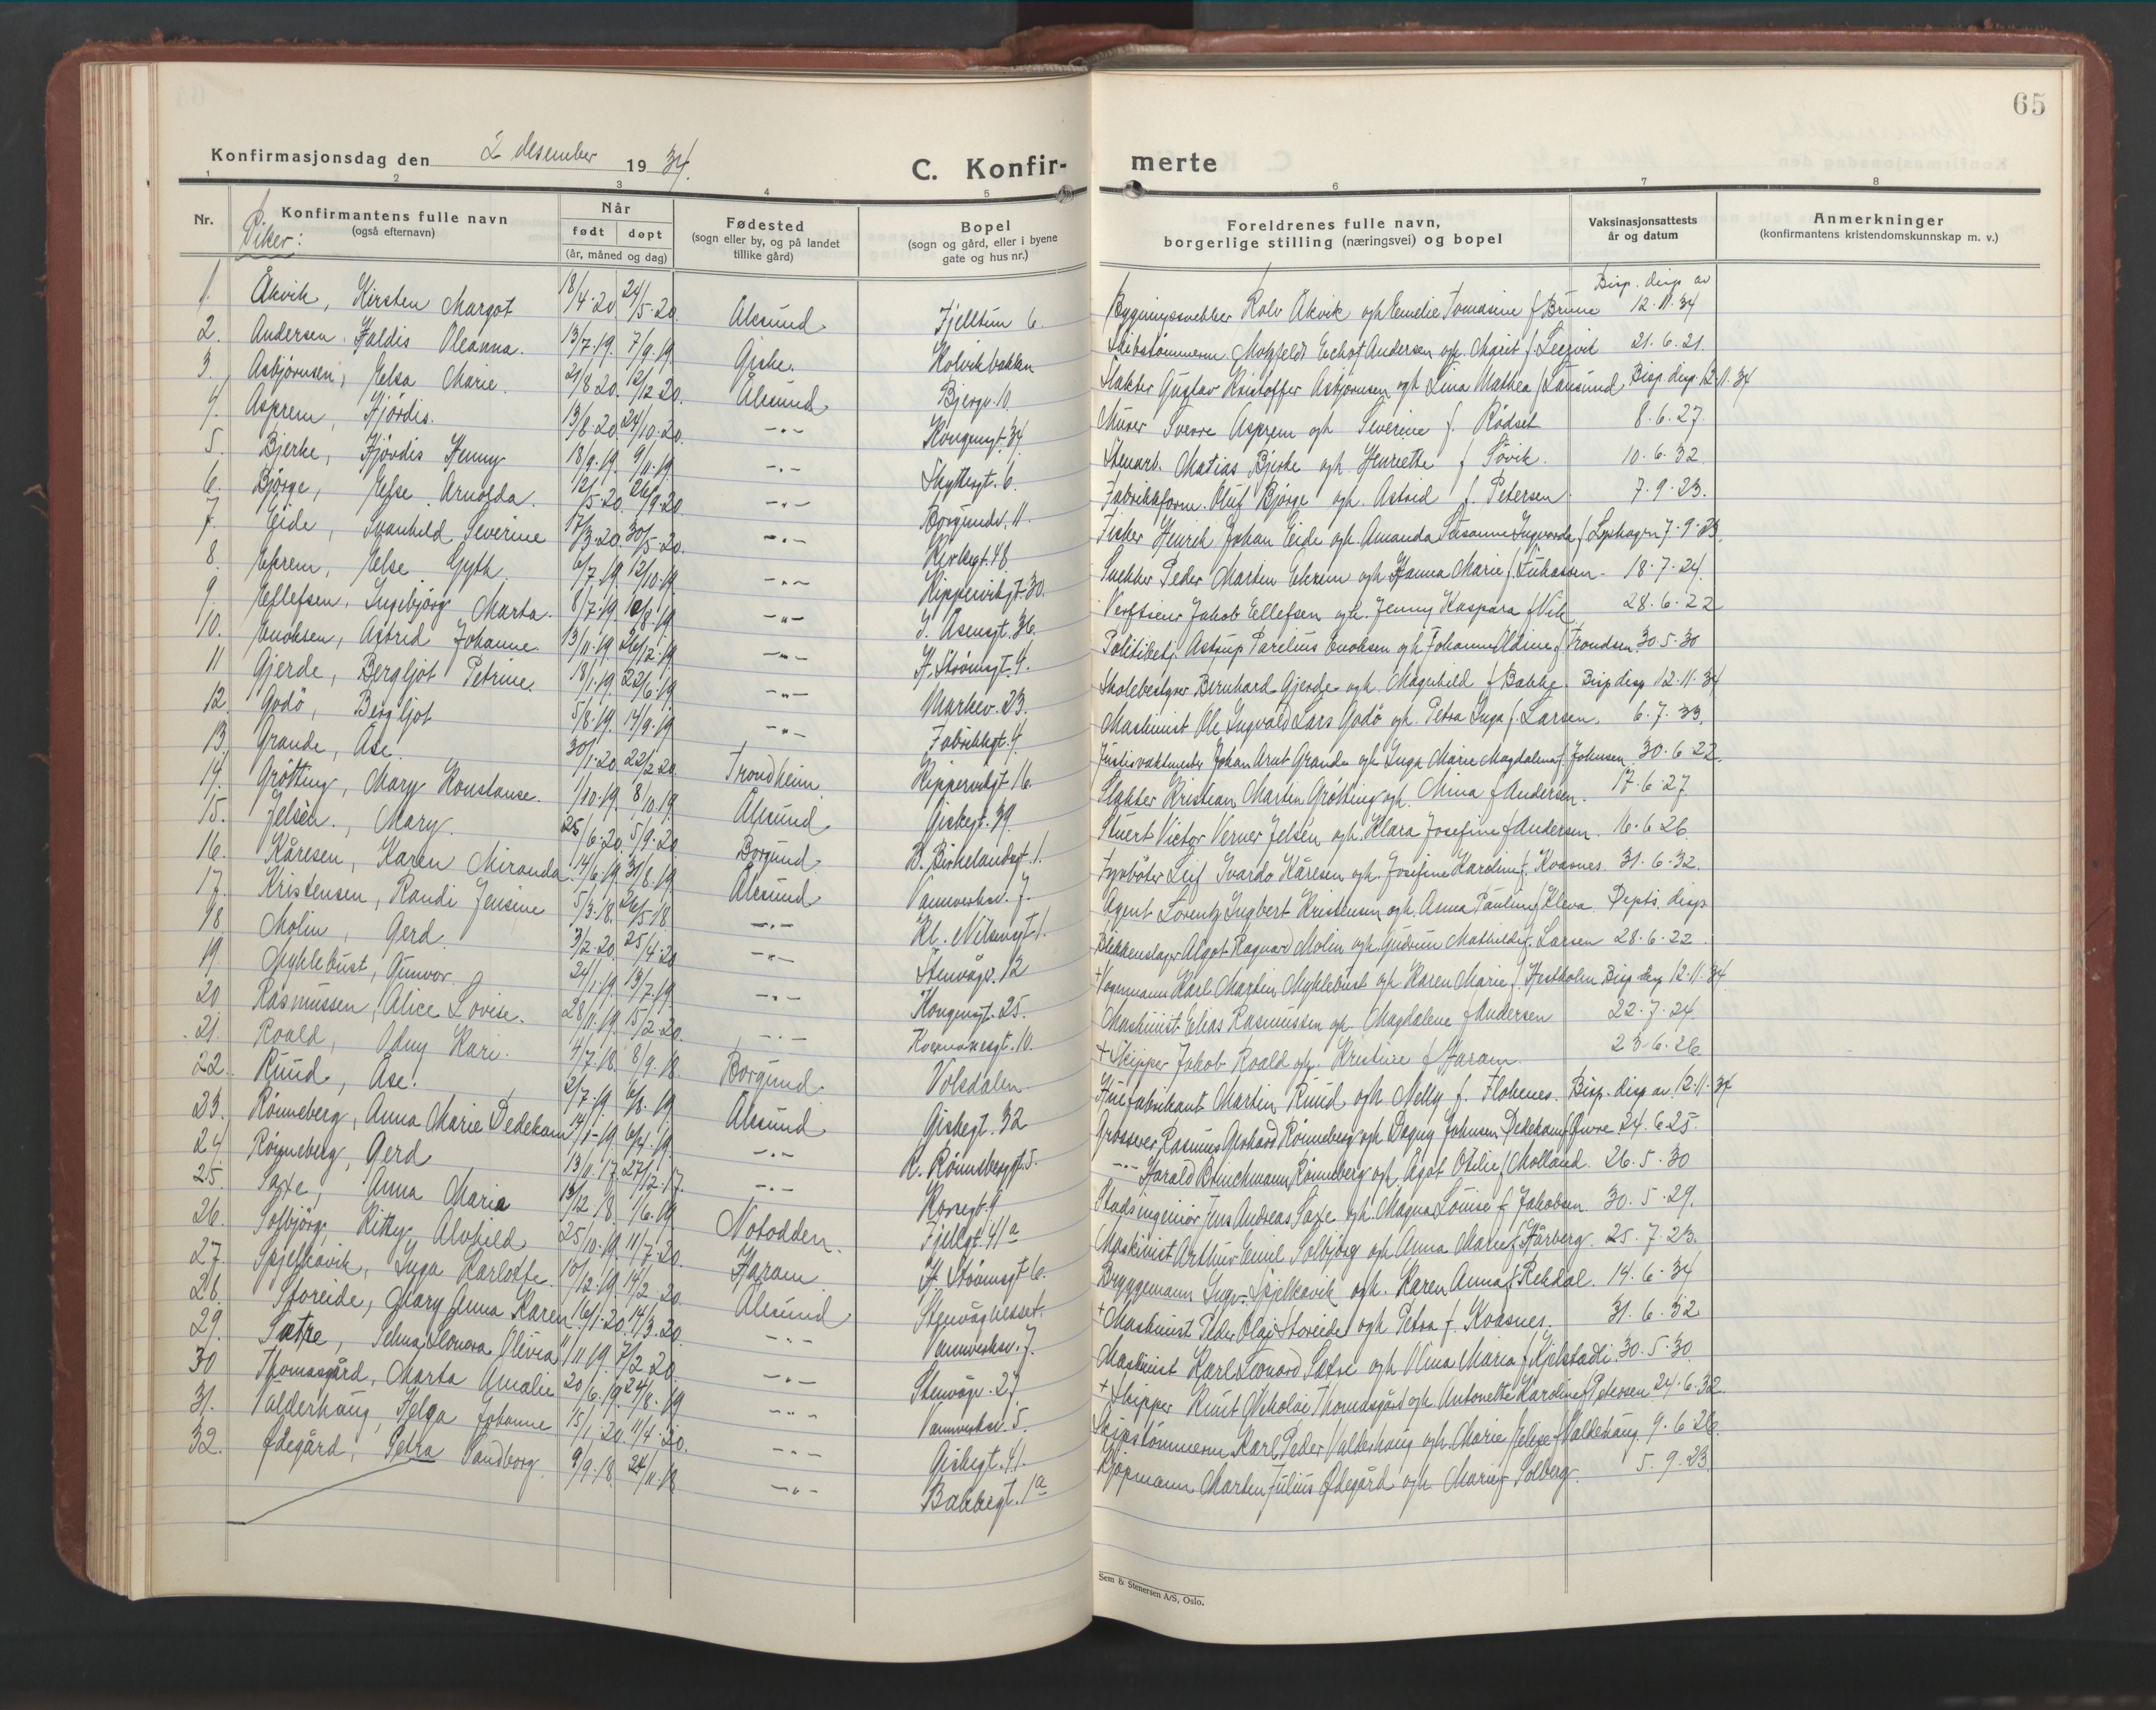 65
Konfirmasjonsdag den 2 desember 1934.
C. Konfir- merte
1 2 3 4 5 6 7 8
Nr. Konfirmantens fulle navn (også efternavn) Når født døpt (år, måned og dag) Fødested (sogn eller by, og på landet tillike gård) Bopel (sogn og gård, eller i byene gate og hus nr.) Foreldrenes fulle navn, borgerlige stilling (næringsvei) og bopel Vaksinasjonsattests år og datum Anmerkninger (konfirmantens kristendomskunnskap m. v.)
Piker:
Bisp. disp av
1. Åkvik, Kirsten Margot 18/4-20 24/5-20 Ålesund Fjelltun 6. Rolv Åkvik og h Emelie Tomasine f Brune 12.11.34
2. Andersen Haldis Oleanna. 13/7.19. 7/9.19 Giske. Kolvikbakken Andersen og h. Marit f. 21.6.21.
3. Asbjørnsen, Elsa Marie. 21/8.20. 12/12 20. Ålesund Bjergv. 10. Slakter Gustav Kristoffer Asbjørnsen og h Lina Mathea f Bisp. disp. 12.11.34
4. Asprem, Hjördis. 13/8.20. 24/10.20. -"- Kongensgt. 34 Murer Sverre Asprem og h Severine f. Rødset 8.6.27.
5. Bjerke, Hjördis Jenny 18/9.19. 9/11.19. -"- Skyttergt. 6. Stenarb. Matias Bjerke og h Henriette f Søvik. 10.6.32.
6. Bjørge, Else Arnolda. 12/5.20. 26/9.20. -"- Borgundv. 11. Fabrikkform. Oluf Bjørge og h. Astrid f. Petersen 7.9.23.
7. Eide, Svanhild Severine 17/3.20. 30/5.20. -"- Kirkegt. 48. Fisker Henrik Johan Eide og h Amanda Susanne Ingvarda f 7.9.23.
8. Ekrem, Else Gyth 6/7.19 12/10.19 -"- Kippervikgt 30. Snekker Peder Martin Ekrem og h Hanna Marie f 18.7.24.
9. Ellefsen, Ingebjørg Marta. 8/7.19 10/8.19 -"- I. Åsensgt. 36. Verftseier Jakob Ellefsen og h. Jenny Kaspara f Vik 28.6.22
10. Enoksen, Astrid Johanne. 13/11.19 26/12.19 -"- H. Strömsgt. 4. Politibetj. Astrup Parelius Enoksen og h Johanne Aldine f Trondsen 30.5.30
11 Gjerde, Bergljot Petrine. 18/1.19. 22/6.19 -"- Markev. 23. Skolebestyrer Bernhard Gjerde og h. Magnhild f Bakke. Bisp disp 12.11.34
12. Godö, Bergljot 5/8.19. 14/9.19 -"- Fabrikkgt. 4. Maskinist Ole Ingvald Lars Godö og h. Petra Inga f. Larsen. 6.7.33.
13. Grande, Åse. 30/1.20. 22/2 20. Trondheim. Kippervikgt 16. Johan Arnt Grande og h Inga Marie Magdalena f. Johnsen 30.6 22.
14. Grötting, Mary Konstanse. 1/10.19. 8/10.19 Ålesund Giskegt. 39. Slakter Kristian Martin Gröttting og h. Mina f Andersen. 17.6.27
15. Jelsèn., Mary. 25/6.20. 5/9.20. Borgund. B. Birkelandsgt. 1. Stuert Victor Verner Jelsén og h. Klara Josefine f Andersen. 16.6 26.
16. Kåresen, Karen Miranda 14/6.19 31/8.19 Ålesund Vannverksv. 7. Fyrbøter Leif Ivardo Kåresen og h. Josefine Karoline f. Kvasnes 31.6.32.
17. Kristensen, Randi Jensine 5/3.18. 26/5 18. -"- Kl. Nilsensgt 1. Agent Lorentz Ingbert Kristensen og h. Anna Pauline f Kleva. Depts. disp
18 Molin, Gerd. 3/2.20. 25/4.20 -"- Stenvågv. 12 Blikkenslager Algot Ragnvard Molin og h. Gudrun Mathilde f. Larsen 28.6.22.
19 Myklebust, Gunvor. 24/1.19 13/7.19 -"- Kongensgt. 25. + Vognmann Karl Martin Myklebust og h Karen Marie f. Hestholm Bisp disp 12.11.34
20 Rasmussen, Alice Lovise. 28/11.19. 15/2.20. -"- Kvernnesgt. 10. Maskinist Elias Rasmussen og h. Magdalene f Andersen 22.7.24.
21. Roald, Odny Kari. 4/7.18. 8/9.18 Borgund. Volsdalen + Skipper Jakob Roald og h. Kristine f Haram 23.6.26
22. Ruud, Åse. 2/7.19 6/8.19 Ålesund Giskegt. 32 Martin Ruud og h Nelly f. Flotnes. Bisp. disp av 12.11.34
23. Rönneberg, Anna Marie Dedekam 14/1-19 6/4.19 -"- R. Rönnebergsgt. 5. Grosserer Rasmus Gerhard Rönneberg og h Dagny Johnsen Dedekam f Qvivre 24.6.25.
24. Rönneberg, Gerd 13/11.17. 27/12.17. -"- Korsegt. 9 -"- Harald Brinchmann Rönneberg og h. Ågot Otilie f Molland. 26.5.30
25. Saxe, Anna Maria 13/12.18. 1/6.19 Notodden. Fjellgt. 41 a Stadsingeniør Jens Andreas Saxe og h. Magna Louise f Jakobsen. 30.5.29.
26. Solbjørg, Kitty Alvhild 25/10.19. 11/7.20. Haram H. Strömsgt 6. Maskinist Arthur Emil Solbjørg og h Anna Marie f Hårberg. 25.7.23.
27. Spjelkavik, Inga Karlotte. 10/12.19 14/2 20. Ålesund Stenvågnesset. Bryggemann Ingv. Spjelkavik og h. Karen Anna f. Rekdal. 14.6.34
28. Storeide, Mary Anna Karen 16/1.20. 14/3.20. -"- Vannverksv. 7. + Maskinist Peder Olai Storeide og h Petra f. Kvasnes. 31.6.32
29. Sætre, Selma Leonora Olivia 11/11 19. 7/2 20. -"- Stenvågv. 27 Maskinist Karl Leonard Sætre og h Olina Maria f Kjelstadli 30.5.30.
30 Thomasgård, Marta Amalie 20/6.19. 24/8.19 -"- Vannverksv. 5. + Skipper Knut Nikolai Thomasgård og h Antonette Karoline f Petersen 24.6.32.
31. Valderhaug, Helga Johanne 15/1.20. 11/4.20. -"- Giskegt. 41. Skipstømmerm. Karl Peder Valderhaug og h Marie Jelise f Valdehaug. 9.6 26.
32. Ødegård, Petra Sandborg. 9/9.18. 24/11.18 -"- Bakkegt. 1 a Kjøpmann Martin Julius Ødegård og h Marie f Solberg. 5.9.23.
Sem & Stenersen A/S, Oslo.